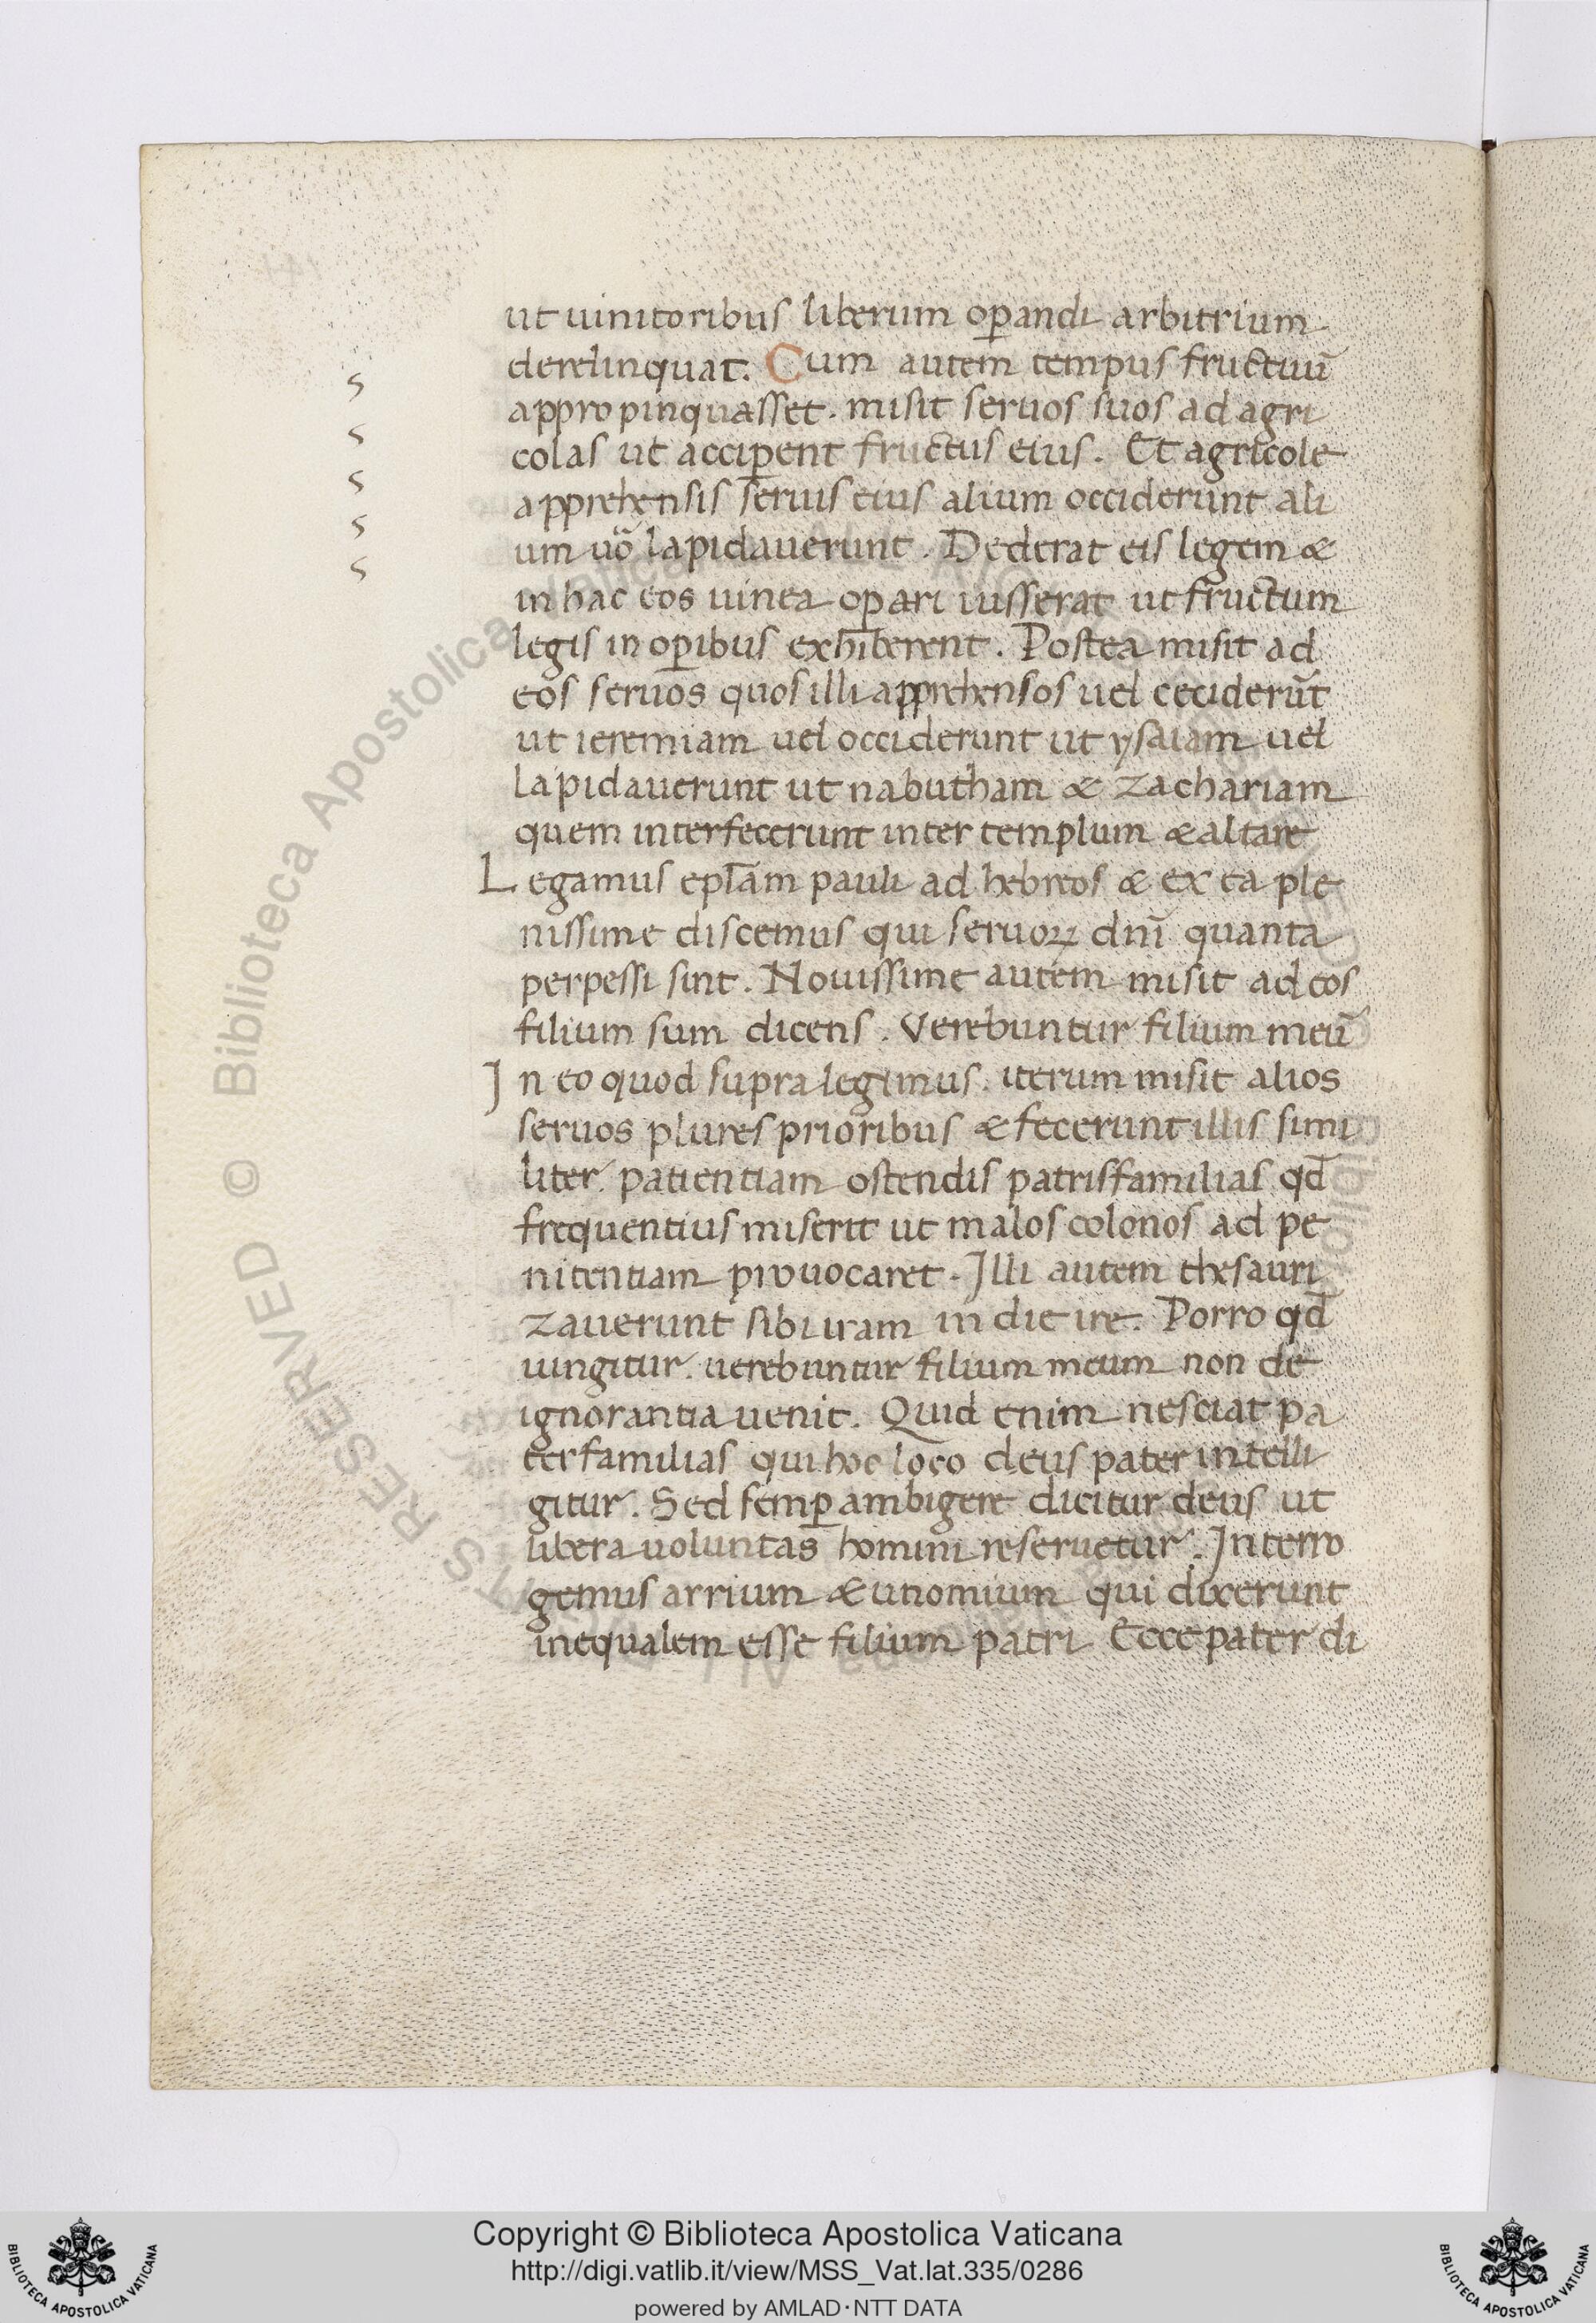 ut uinitoribus liberum oꝑandi arbitrium
derelinquat. Cum autem tempus fructuū
appropinquasset. misit seruos suos ad agri
colas ut acciꝑent fructus eius. Et agricole
apprehensis seruis eius alium occiderunt ali
um uo̎ lapidauerunt. Dederat eis legem &
in hac eos uinea oꝑari iusserat ut fructum
legis in oꝑibus exhiberent. Postea misit ad
eos seruos quos illi apprehensos uel ceciderūt
ut ieremiam uel occiderunt ut ysaiam uel
lapidauerunt ut nabutham & zachariam
quem interfecerunt inter templum & altare
Legamus epl̄am pauli ad hebreos & ex ea ple
nissime discemus qui seruoꝝ dnī quanta
perpessi sint. Nouissime autem misit ad eos
filium sum dicens. Verebuntur filium meū
In eo quod supra legimus. iterum misit alios
seruos plures prioribus & fecerunt illis simi
liter. patientiam ostendis patrisfamilias qd̄
frequentius miserit ut malos colonos ad pe
nitentiam prouocaret. Illi autem thesauri
zauerunt sibi iram in die ire. Porro qd̄
iungitur. uerebuntur filium meum non de
ignorantia uenit. Quid enim nesciat pa
terfamilias qui hoc loco deus pater intelli
gitur. Sed semꝑ ambigere dicitur deus ut
libera uoluntas homini reseruetur. Interro
gemus arrium & unomium qui dixerunt
inequalem esse filium patri. Ecce pater di
s
s
s
s
s
RESERVED © Biblioteca Apostolica Vaticana
Copyright © Biblioteca Apostolica Vaticana
http://digi.vatlib.it/view/MSS_Vat.lat.335/0286
powered by AMLAD·NTT DATA
BIBLIOTECA APOSTOLICA VATICANA
BIBLIOTECA APOSTOLICA VATICANA